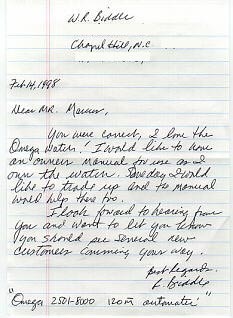 W.R. Biddle
Chapel Hill, N.C.
Feb 14, 1998
Dear MR. Mercer,
You were correct, I love the
Omega watch! I would like to have
an owners manual for use as I
own the watch. Someday I would
like to trade up and the manual
would help there too.
I look forward to hearing from
you and want to let you know
you should see several new
customers comming your way.
Best Regards.
R. Biddle
"Omega 2501-8000 120m automatic"